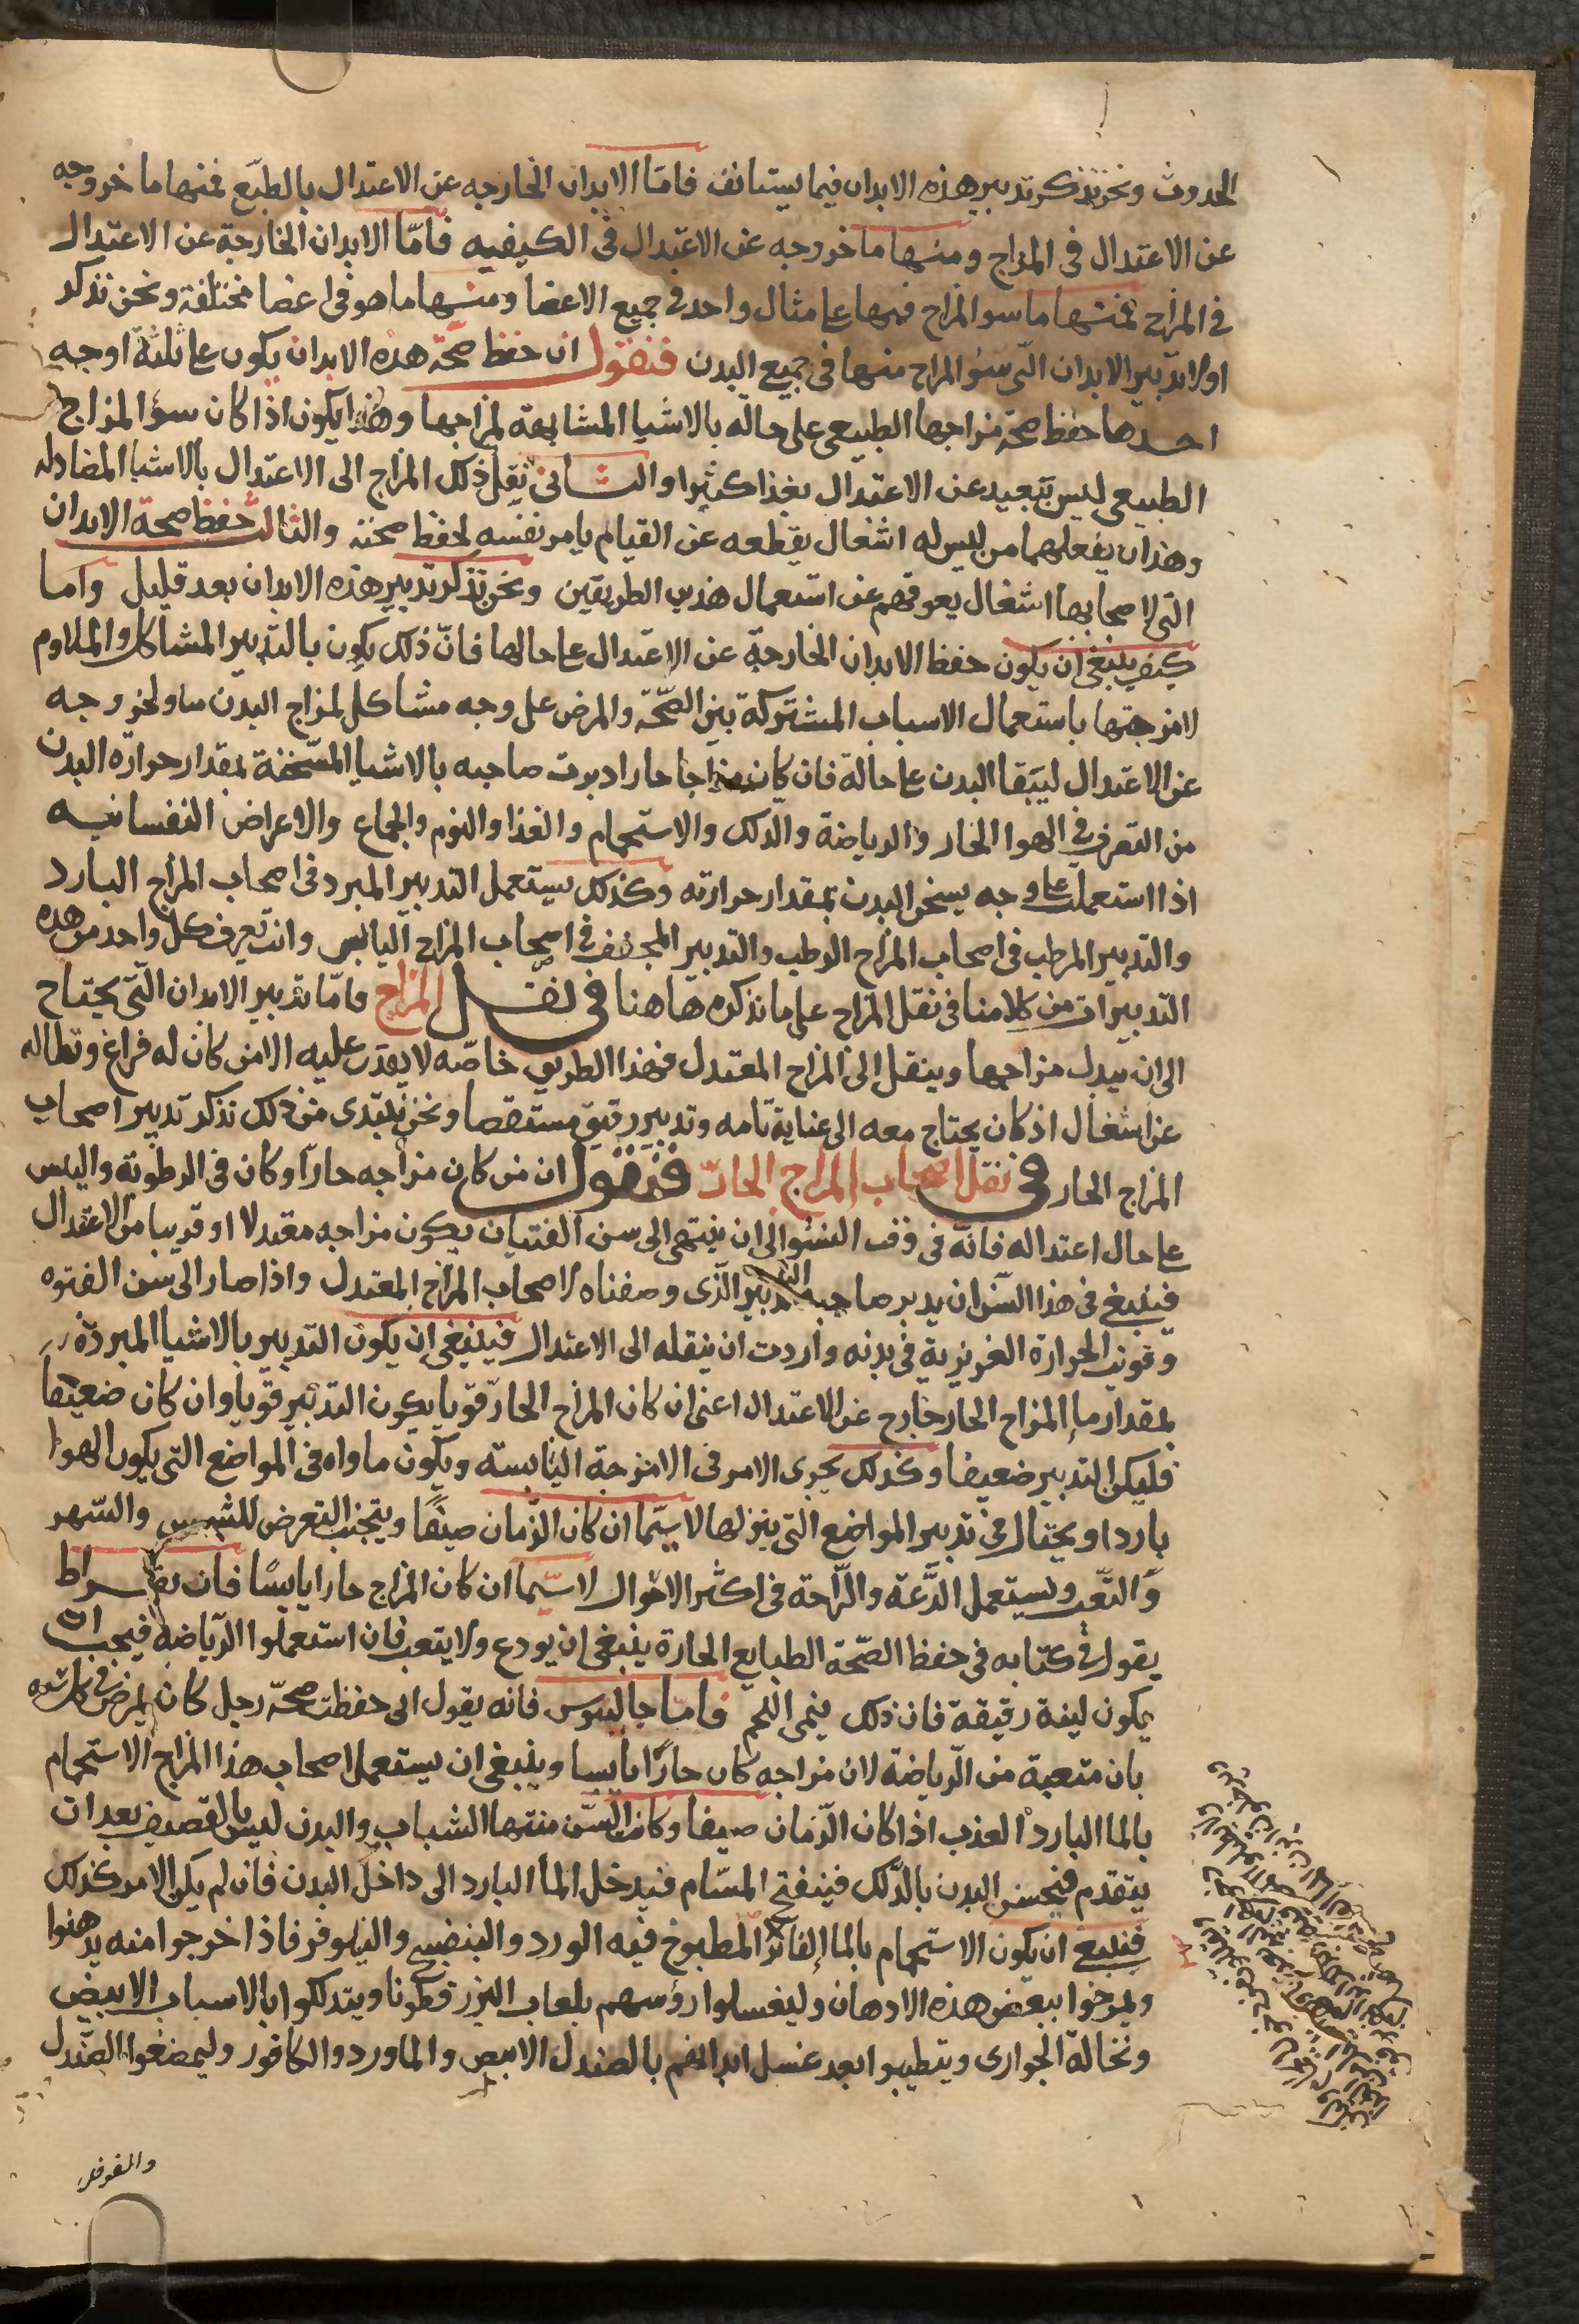 الحدوث ونحن نذكر تدبير هذه الابدان فيما يستانف فامّا الابدان الخارجه عن الاعتدال بالطبّع فمنها ما خروجه
عن الاعتدال فى المزاج ومنها ما خروجه عن الاعتدال فى الكيفيه فامّا الابدان الخارجة عن الاعتدال
فى المزاج فمنها ما سو المزاج فيها على مثال واحد فى جميع الاعضا ومنها ما هو فى اعضا مختلفة ونحن نذكر
اولا تدبير الابدان التى سؤ المزاج منها فى جميع البدن فنقول ان حفظ صحّة هذه الابدان يكون على ثلثة اوجه
احدها حفظ صحّة مزاجها الطبيعى على حاله بالاشيا المشابهة لمزاجها وهذا يكون اذا كان سؤ المزاج
الطبيعى ليس ببعيد عن الاعتدال بعدا كثيرا والثانى نقل ذلك المزاج الى الاعتدال بالاشيا المضادله
وهذان يفعلهما من ليس له اشغال يقطعه عن القيام بامر نفسه لحفظ صحته والثالث حفظ صحة الابدان
التى لاصحابها اشغال يعوقهم عن استعمال هذين الطريقين ونحن نذكر تدبير هذه الابدان بعد قليل واما
كيف ينبغى ان يكون حفظ الابدان الخارجة عن الاعتدال على حالها فانّ ذلك يكون بالتدبير المشاكل والملاوم
لامزجتها باستعمال الاسباب المشتركة بين الصّحّة والمرض على وجه مشاكل لمزاج البدن مساو لخروجه
عن الاعتدال ليبقا البدن على حالة فان كان مزاجا حارا دبرت صاحبه بالاشيا المسّخنة بمقدار حرارة البدن
من التعرض فى الهوا الحار والرياضة والدّلك والاستحمام والغذا والنوم والجماع والاعراض النفسانيه
اذا استعملت على وجه يسخن البدن بمقدار حرارته وكذلك يستعمل التدبير المبرد فى اصحاب المزاج البارد
والتدبير المرطب فى اصحاب المزاج الرطب والتدبير المجفف فى اصحاب المزاج اليابس وانت تعرف كل واحد من هذه
التدبيرات من كلامنا فى نقل المزاج على ما نذكره هاهنا فى نقل المزاج فامّا تدبير الابدان التّى يحتاج
الى ان يبدل مزاجها وينقل الى المزاج المعتدل فهذا الطريق خاصّه لا يقدر عليه الا من كان له فراغ وبطاله
عن اشغال اذ كان يحتاج معه الى عناية تامه وتدبير رقيق مستقصا ونحن نبتدى من ذلك نذكر تدبير اصحاب
المزاج الحار فى نقل اصحاب المزاج الحارّ فنقول ان من كان مزاجه حارّا وكان فى الرطوبة واليبس
على حال اعتداله فانّه فى وقت النشو الى ان ينتهى الى سن الفتيان يكون مزاجه معتدلا او قريبا من الاعتدال
فينبغى فى هذا السّن ان يدبر صاحبه التدبير الّذى وصفناه لاصحاب المزاج المعتدل واذا صار الى سن الفتوه
وقويت الحرارة الغريزية فى بدنه واردت ان ينقله الى الاعتدال فينبغى ان يكون التدبير بالاشيا المبردّة
بمقدار ما المزاج الحار خارج عن الاعتدال اعنى ان كان المزاج الحارّ قويا يكون التدبير قويا وان كان ضعيفا
فليكن التدبير ضعيفا وكذلك يجرى الامر فى الامزجة اليابسة ويكون ماواه فى المواضع التى يكون الهوا
باردا ويحتال فى تدبير المواضع التى ينزلها لا سيّما ان كان الزّمان صيفًا ويتجنب التعرض للشمس والسّهر
والتّعب ويستعمل الدّعة والرّاحة فى اكثر الاحوال لا سيّما ان كان المزاج حارا يابسًا فان بقراط
يقول فى كتابه فى حفظ الصّحّة الطبايع الحارة ينبغى ان يودع ولا يتعب فان استعملوا الرّياضة فيجب ان
يكون لينة رقيقة فان ذلك ينمى اللحم فامّا جالينوس فانه يقول انى حفظت صحّة رجل كان يمرض فى كل سنه
بان متعبة من الرّياضة لان مزاجه كان حارًا يابسا وينبغى ان يستعمل اصحاب هذا المزاج الاستحمام
بالما البارد العذب اذا كان الزّمان صيفا وكان السّن منتها الشباب والبدن ليس بالقصيف بعد ان
يتقدم فيحسن البدن بالدّلك فينفتح المسّام فيدخل الماا البارد الى داخل البدن فان لم يكن الامر كذلك
فينبغى ان يكون الاستحمام بالما الفاتر المطبوخ فيه الورد والبنفسج والنيلوفر فاذا خرجوا منه يدهنوا
وليمرخوا ببعض هذه الادهان وليغسلوا رؤسهم بلعاب البزر قطونا ويتدلكوا بالاسباب الابيض
ونخالة الحوارى ويتطيبوا بعد غسل ابدانهم بالصندل الابيض والماورد والكافور وليمضغوا الصّندل
والفوفل